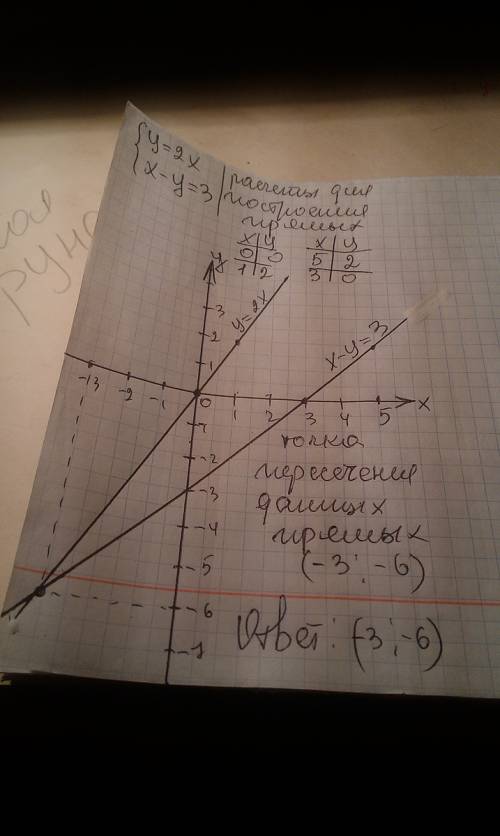 {y=2x
x-y=3
расчеты для
построения
прямых
x|y
0|0
1|2
x|y
5|2
3|0
y
3
2
1
y=2x
x-y=3
-13
-2
-1
0
1
2
3
4
5
x
-2
-3
-4
-5
-6
точка
пересечения
данных
прямых
(-3; -6)
Ответ: (-3; -6)